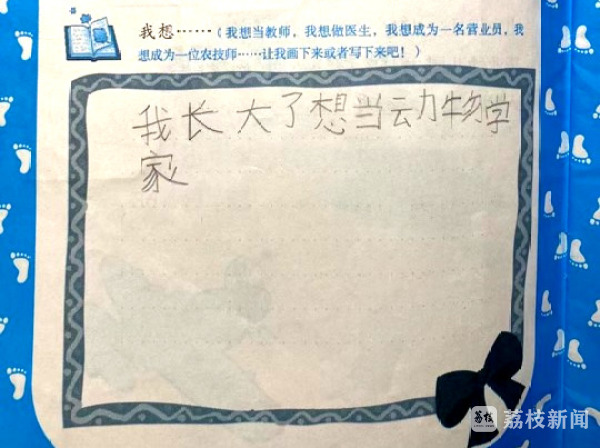 我想……（我想当教师，我想做医生，我想成为一名营业员，我
想成为一位农技师……让我画下来或者写下来吧！）
我长大了想当动物学
家
荔枝
荔枝新闻